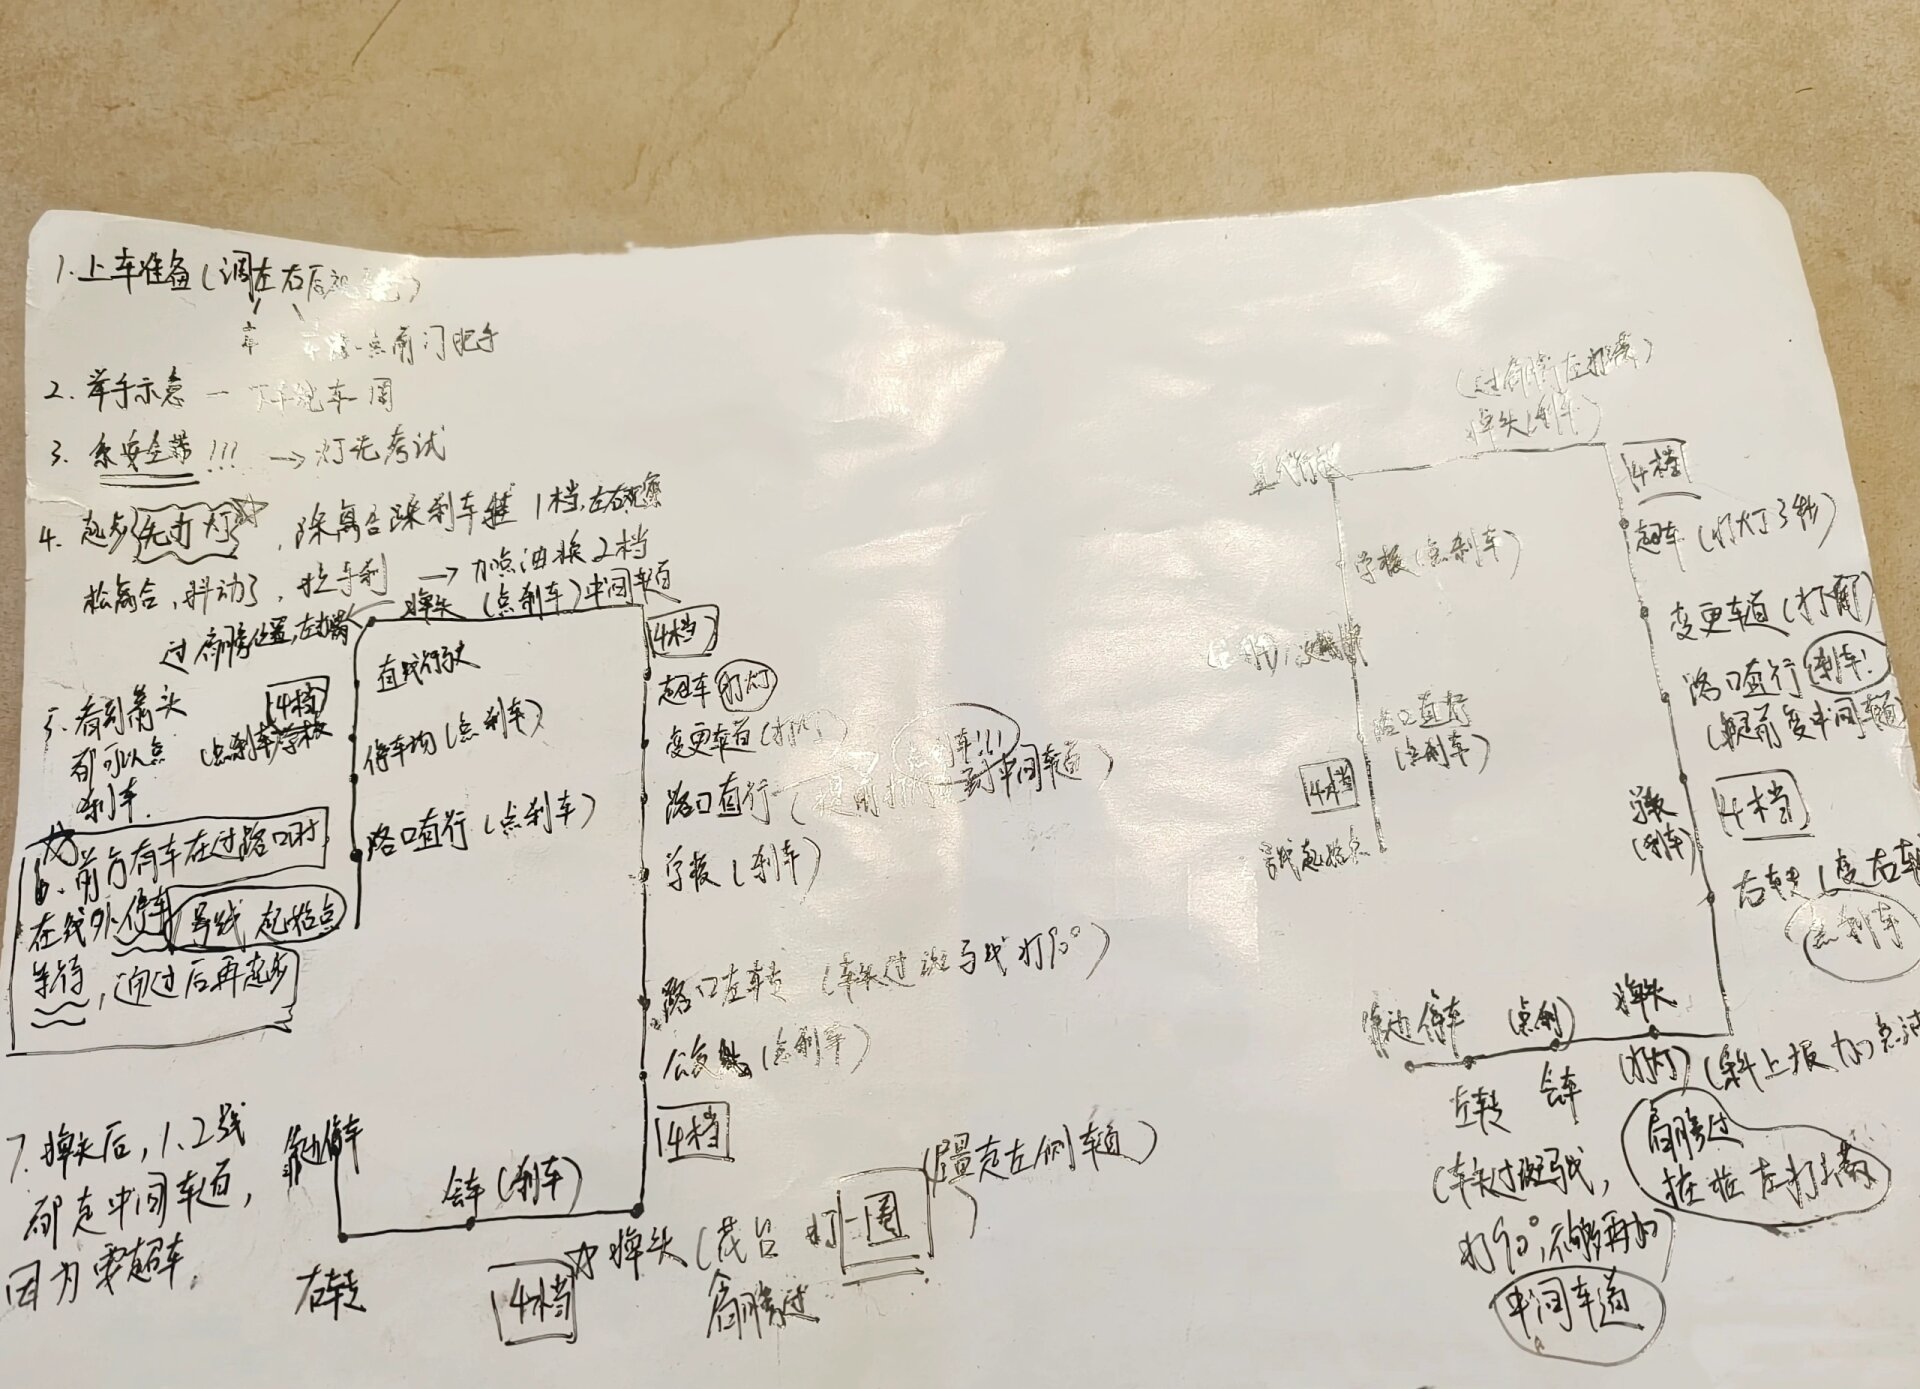 1. 上车准备(调左右后
点前门把手
2. 举手示意 — 下车绕车一周
3. 系安全带!!! → 灯光考试
4. 起步先打灯, 踩离合踩刹车挂1档, 左右观察
松离合, 抖动了, 拉手刹 → 加点油换2档
掉头 (点刹车) 中间车道
过肩膀位置, 左打满
5. 看到箭头
都可以点
刹车.
4档
(点刹车)学校
直线行驶
停车 (点刹车)
路口直行 (点刹车)
6. 前方有车在过路口时
在线外停车
等待, 通过后再起步
号线 起始点
7. 掉头后, 1. 2号线
都走中间车道,
因为要超车.
靠边停车
右转
会车 (刹车)
4档
4档
超车 打灯
变更车道 (打灯)
路口直行 (提前打 到中间车道)
点刹车!!!
学校 (刹车)
路口左转 (车头过斑马线 打90°)
公交站 (点刹车)
4档
掉头 ( 打一圈
肩膀过
(尽量走左侧车道)
(过肩膀左打满)
掉头 (刹车)
直线行驶
学校 (点刹车)
路口直行
(点刹车)
4档
号线起始点
4档
超车 (打灯3秒)
变更车道 (打灯)
路口直行 刹车!
(提前变中间车道)
学校
(刹车)
4档
右转 (变右车
点刹车
掉头
(打灯)
(点刹)
会车
靠边停车
左转
(车头过斑马线,
打90°, 不够再打)
中间车道
肩膀过
左打满